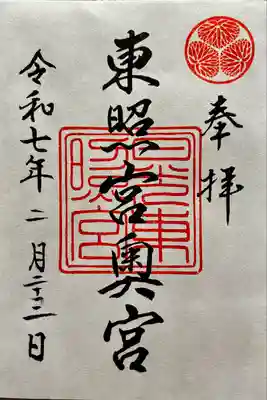 奉拝
東照宮奥宮
令和七年二月二十二日